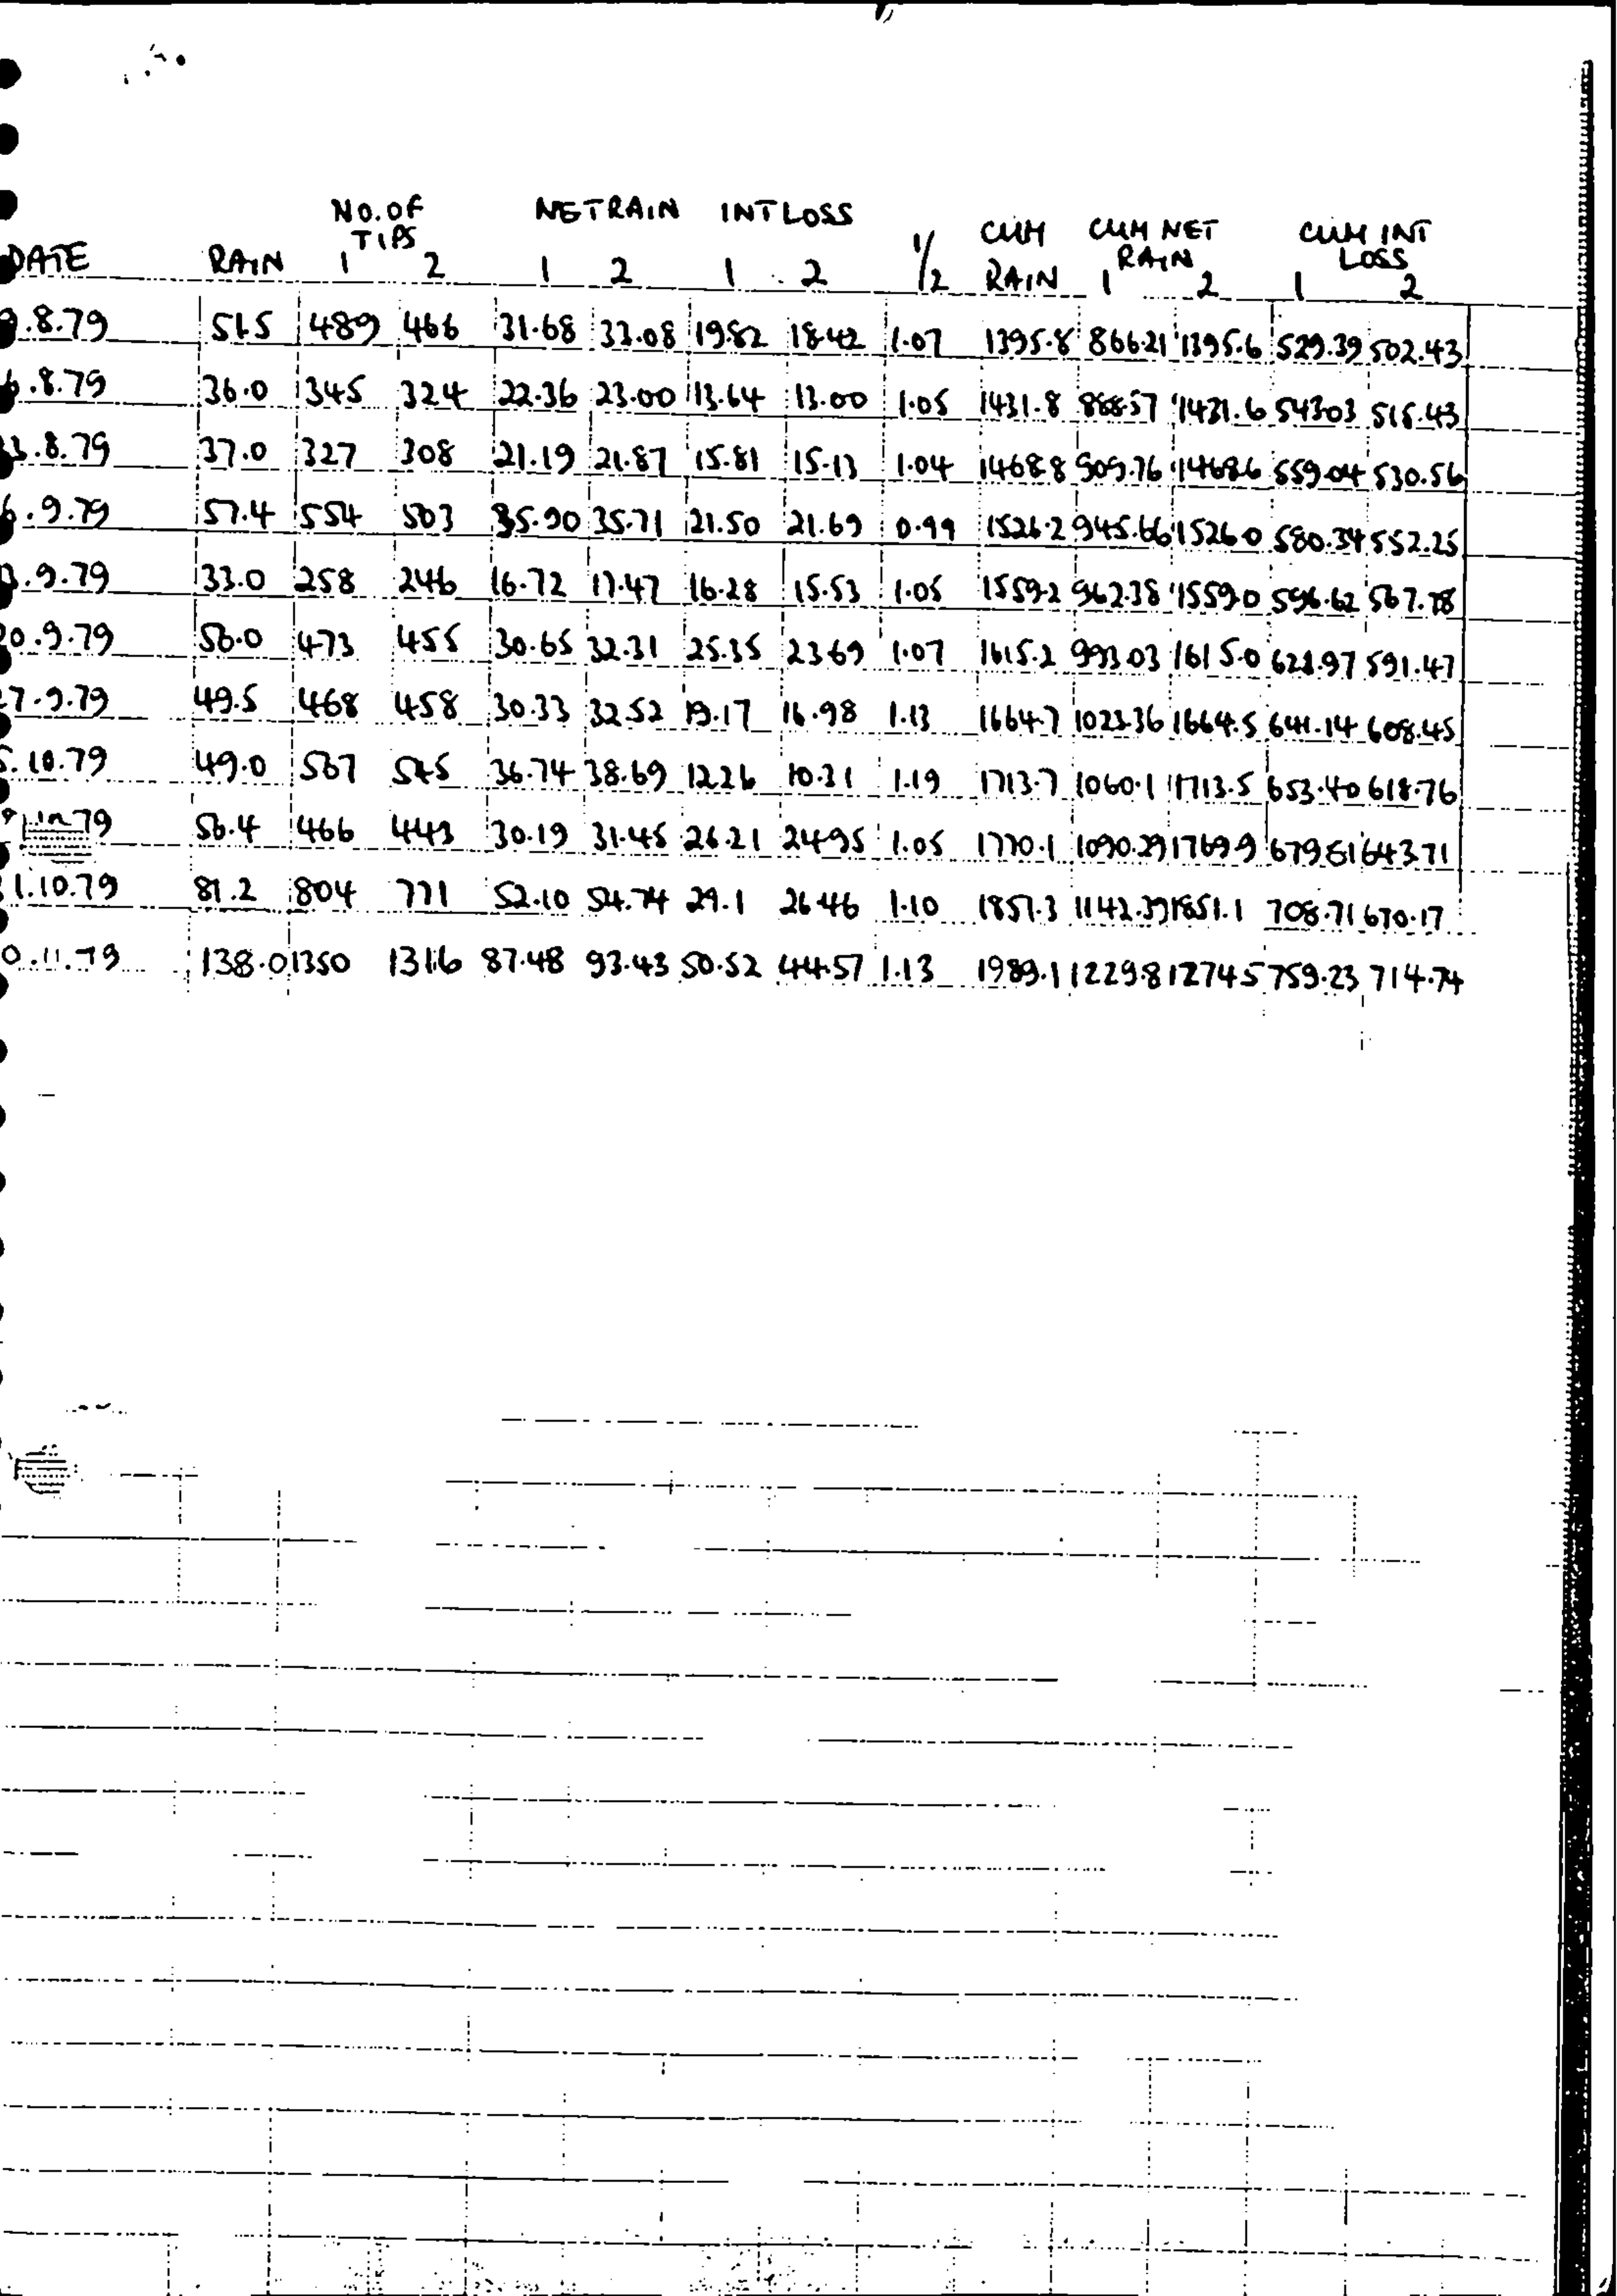 NO. OF NET RAIN INT LOSS
TIPS CUM CUM NET CUM INT
DATE RAIN 1 2 1 2 1 2 1/2 RAIN RAIN 1 2 LOSS 1 2
9.8.79 51.5 489 466 31.68 33.08 19.82 18.42 1.07 1395.8 866.21 1395.6 529.39 502.43
6.8.79 36.0 345 324 22.36 23.00 13.64 13.00 1.05 1431.8 888.57 1431.6 543.03 515.43
3.8.79 37.0 327 308 21.19 21.87 15.81 15.13 1.04 1468.8 909.76 1468.6 559.04 530.56
6.9.79 57.4 554 503 35.90 35.71 21.50 21.69 0.99 1526.2 945.66 1526.0 580.34 552.25
3.9.79 33.0 258 246 16.72 17.47 16.28 15.53 1.05 1559.2 962.38 1559.0 596.62 567.78
20.9.79 56.0 473 455 30.65 32.31 25.35 23.69 1.07 1615.2 993.03 1615.0 621.97 591.47
27.9.79 49.5 468 458 30.33 32.52 19.17 16.98 1.13 1664.7 1023.36 1664.5 641.14 608.45
5.10.79 49.0 567 545 36.74 38.69 12.26 10.31 1.19 1713.7 1060.1 1713.5 653.40 618.76
79 56.4 466 443 30.19 31.45 26.21 24.95 1.05 1770.1 1090.29 1769.9 679.61 643.71
1.10.79 81.2 804 771 52.10 54.74 29.1 26.46 1.10 1851.3 1142.39 1851.1 708.71 670.17
0.11.79 138.0 1350 1316 87.48 93.43 50.52 44.57 1.13 1989.1 1229.8 1274.5 759.23 714.74